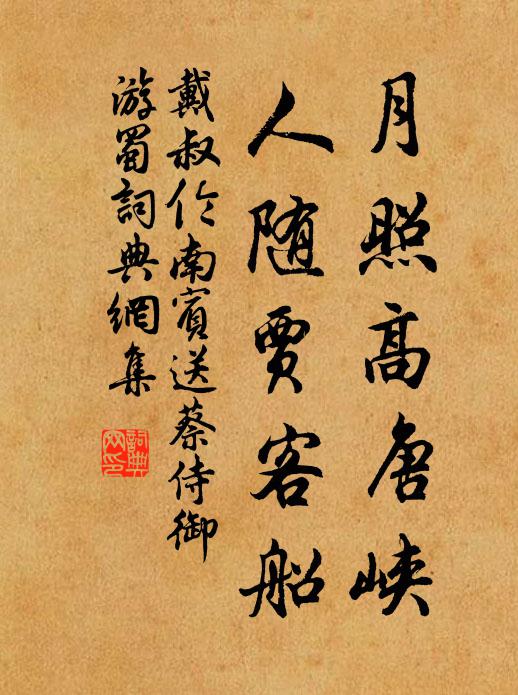 月照高唐峡
人随贾客船
戴叔伦南宾送蔡侍御
游蜀词典網集
詞典
网印